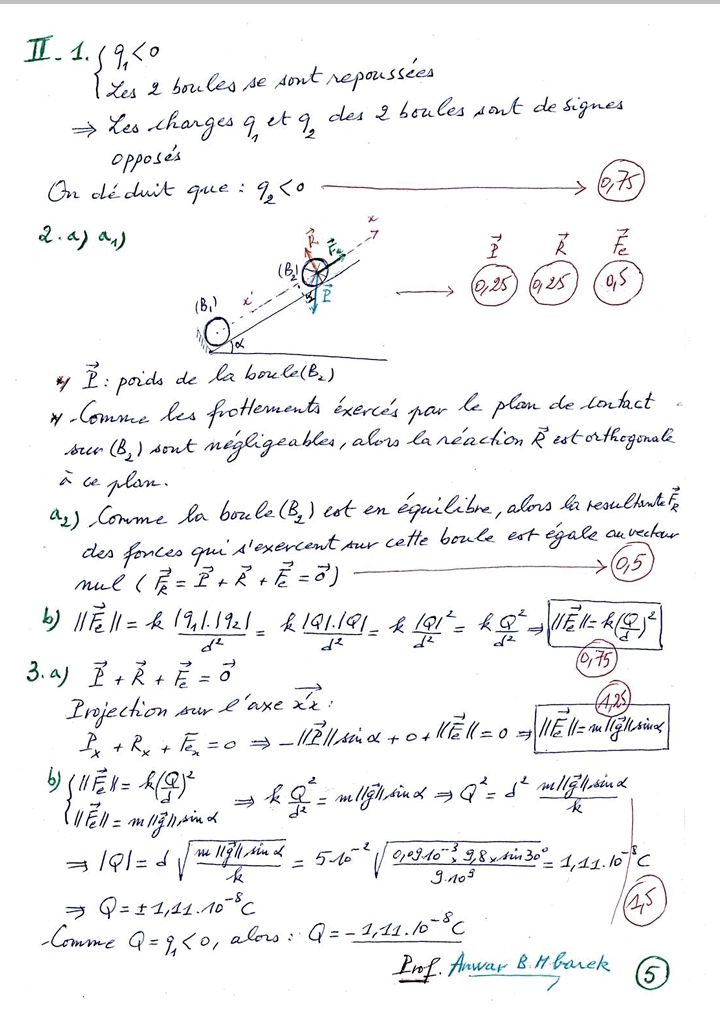 II- 1. { q₁<0
Les 2 boules se sont repoussées
⇒ Les charges q₁ et q₂ des 2 boules sont de signes
opposés
On déduit que : q₂<0 → 0,75
2. a) a₁)
(B₁) x' α (B₂) R⃗ F⃗e P⃗ α x
P⃗ R⃗ F⃗e
→ 0,25 0,25 0,5
* P⃗ : poids de la boule (B₂)
* - Comme les frottements éxercés par le plan de contact
sur (B₂) sont négligeables, alors la réaction R⃗ est orthogonale
à ce plan.
a₂) Comme la boule (B₂) est en équilibre, alors la resultante F⃗R
des forces qui s'exercent sur cette boule est égale au vecteur
nul ( F⃗R = P⃗ + R⃗ + F⃗e = 0⃗ ) → 0,5
b) ||F⃗e|| = k |q₁|.|q₂|/d² = k |Q|.|Q|/d² = k |Q|²/d² = k Q²/d² ⇒ ||F⃗e|| = k(Q/d)²
0,75
3. a) P⃗ + R⃗ + F⃗e = 0⃗
Projection sur l'axe x'x : 1,25
Px + Rx + Fex = 0 ⇒ -||P⃗|| sin α + 0 + ||F⃗e|| = 0 ⇒ ||F⃗e|| = m||g⃗|| sin α
b) { ||F⃗e|| = k(Q/d)²
||F⃗e|| = m||g⃗|| sin α ⇒ k Q²/d² = m||g⃗|| sin α ⇒ Q² = d² m||g⃗|| sin α / k
⇒ |Q| = d √(m||g⃗|| sin α / k) = 5.10⁻² √(0,09.10⁻³ × 9,8 × sin 30° / 9.10⁹) = 1,11.10⁻⁸ C
⇒ Q = ± 1,11.10⁻⁸ C 1,5
- Comme Q = q₁<0, alors : Q = - 1,11.10⁻⁸ C
Prof. Anwar B. Mbarek 5